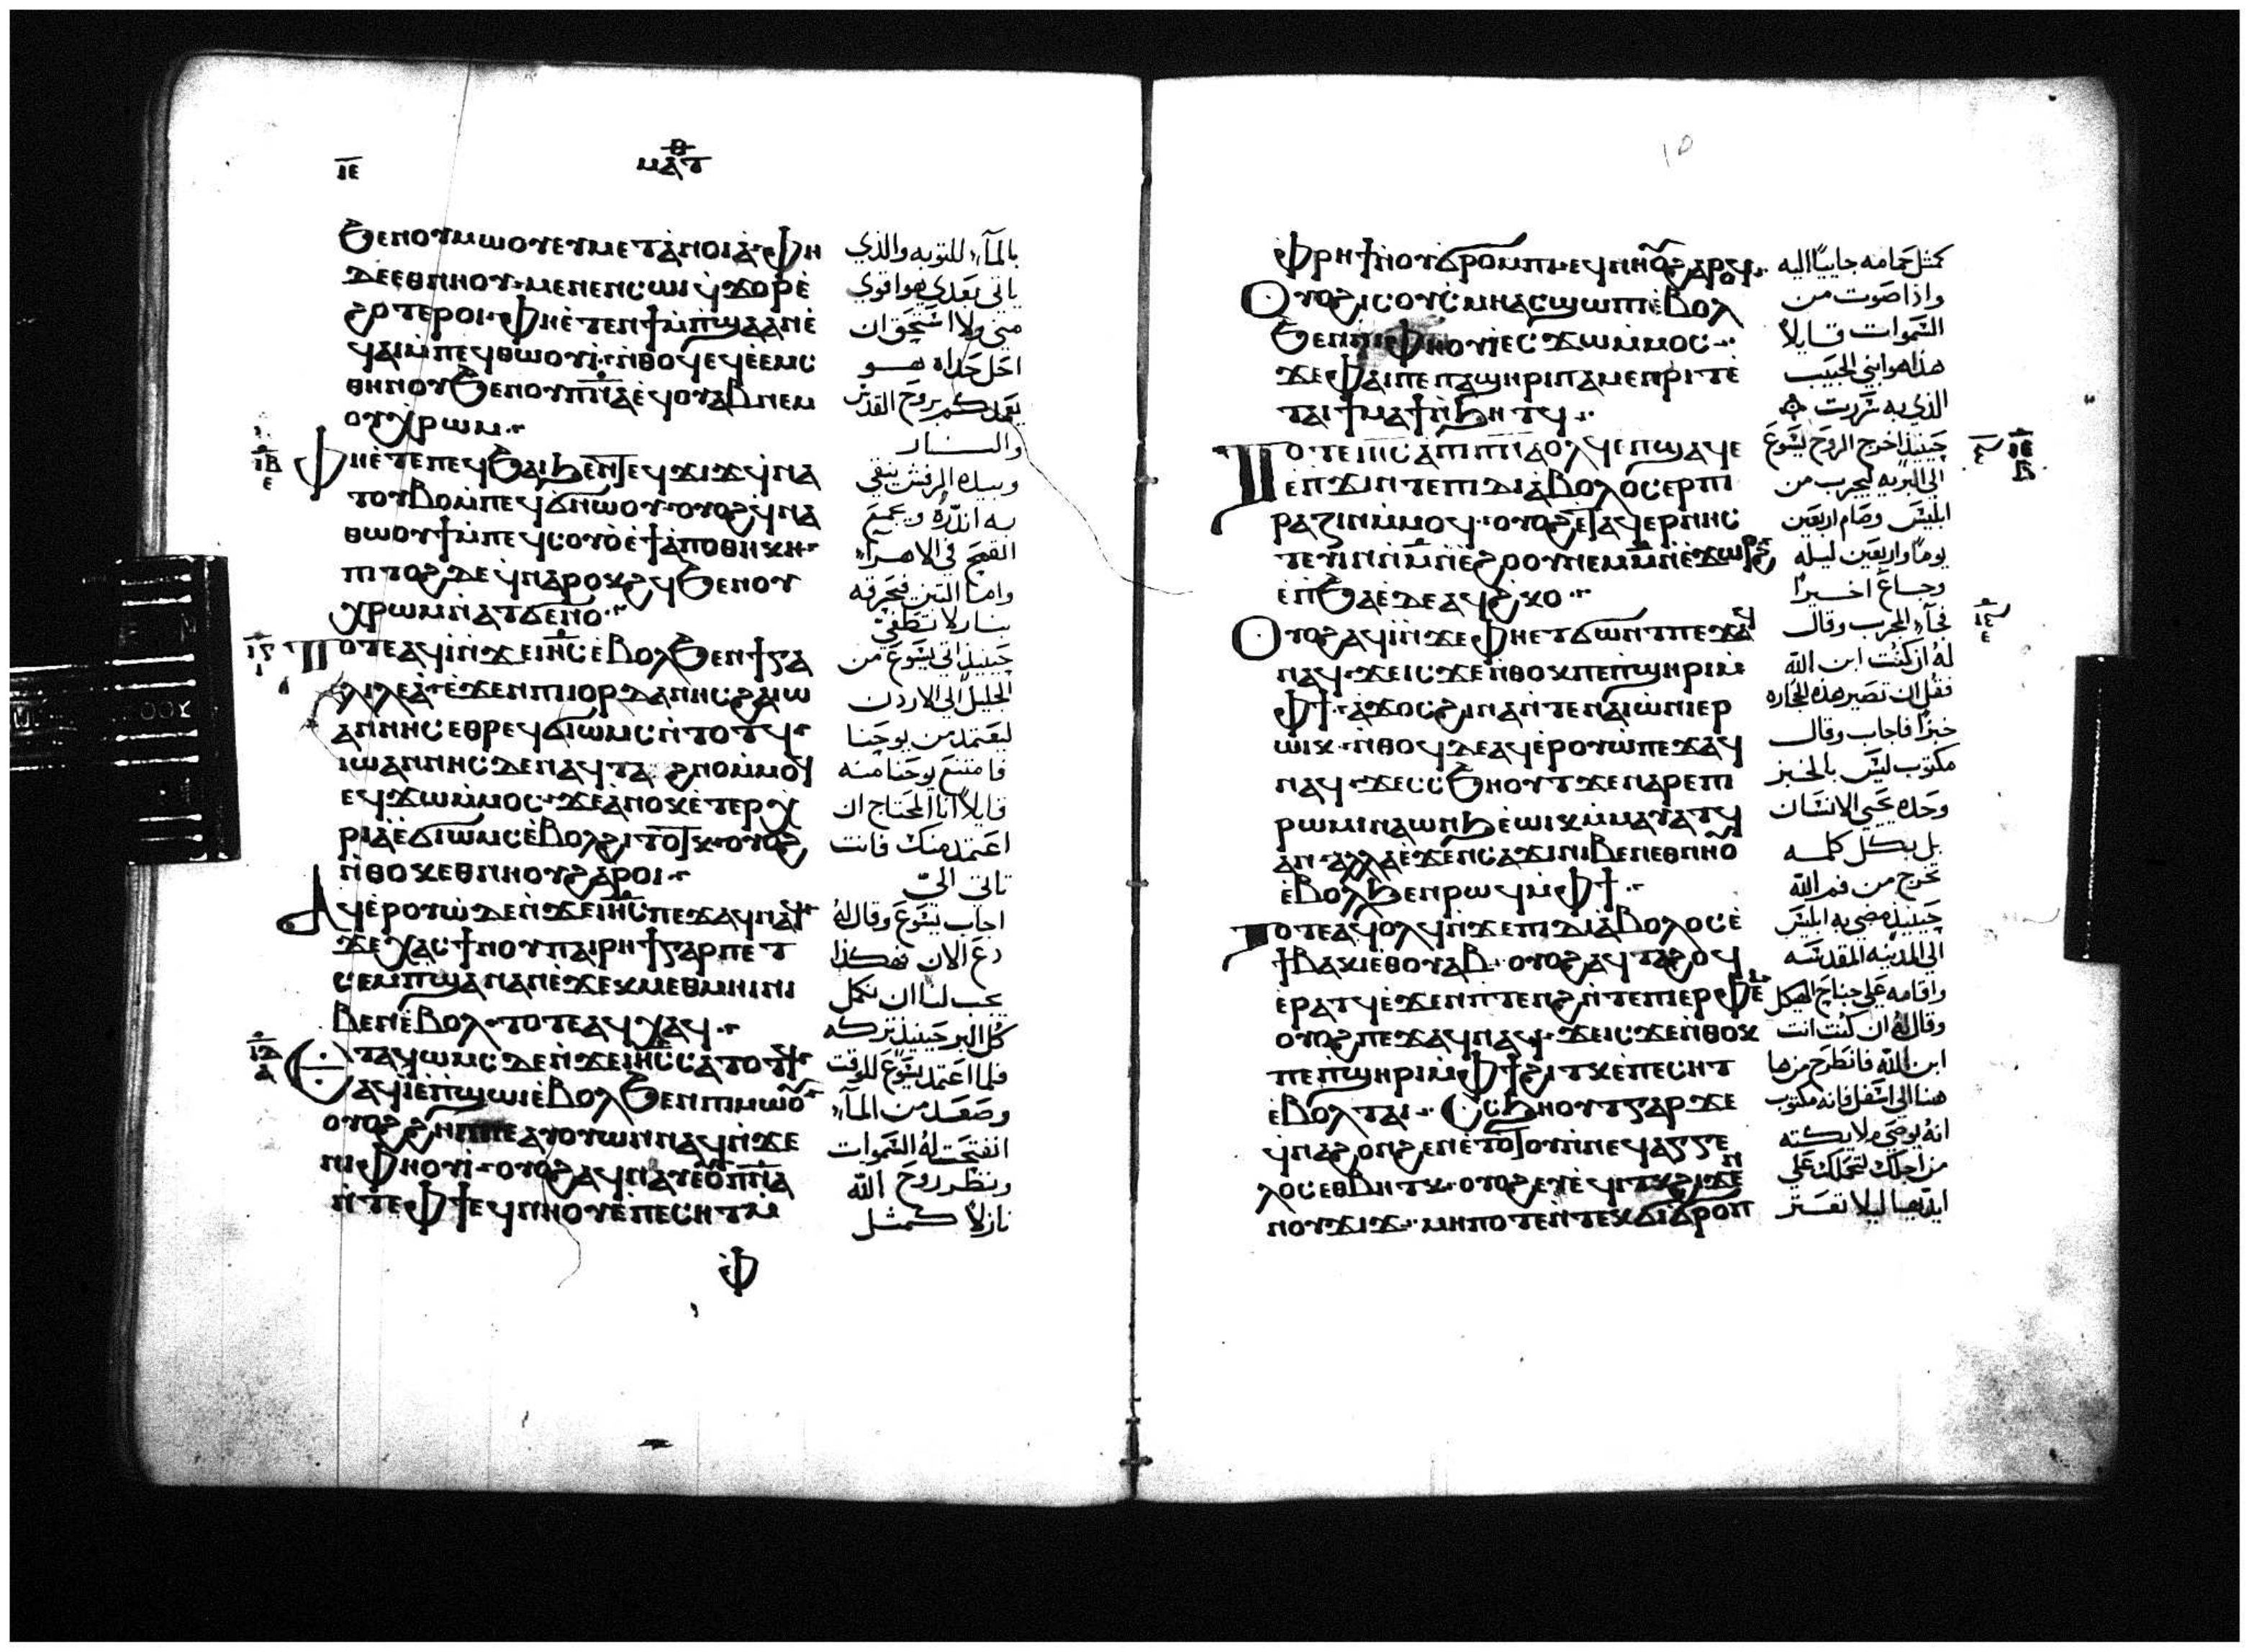 ⲓⲉ
ⲙⲁⲧⲑ
ϧⲉⲛⲟⲩⲙⲱⲟⲩⲉⲩⲙⲉⲧⲁⲛⲟⲓⲁ ⲫⲏ
ⲇⲉⲉⲑⲛⲏⲟⲩ ⲙⲉⲛⲉⲛⲥⲱⲓ ϥϫⲟⲣⲉ
ϩⲟⲧⲉⲣⲟⲓ ⲫⲏⲉⲧⲉⲛϯⲙⲡϣⲁⲁⲛⲉ
ϥⲁⲓⲙⲡⲉϥⲑⲱⲟⲩⲓ ⲛⲑⲟϥⲉϥⲉⲉⲙⲥ
ⲑⲏⲛⲟⲩϧⲉⲛⲟⲩⲡⲛⲁⲉϥⲟⲩⲁⲃⲛⲉⲙ
ⲟⲩⲭⲣⲱⲙ
ⲓⲃ ⲉ
ⲫⲏⲉⲧⲉⲡⲉϥϧⲁⲓϧⲉⲛⲧⲉϥϫⲓϫϥⲛⲁ
ⲧⲟⲩⲃⲟⲙⲡⲉϥϭⲛⲱⲟⲩ ⲟⲩⲟϩϥⲛⲁ
ⲑⲱⲟⲩϯⲙⲡⲉϥⲥⲟⲩⲟⲉϯⲁⲡⲟⲑⲏⲕⲏ
ⲡⲓⲧⲟϩⲇⲉϥⲛⲁⲣⲟⲕϩϥϧⲉⲛⲟⲩ
ⲭⲣⲱⲙⲛⲁⲧϭⲉⲛⲟ
ⲓⲅ ⲓ
ⲧⲟⲧⲉⲁϥⲓⲛϫⲉⲓⲏⲥⲉⲃⲟⲗϧⲉⲛϯⲅⲁ
ⲗⲓⲗⲉⲁ ⲉϫⲉⲛⲡⲓⲓⲟⲣⲇⲁⲛⲏⲥϩⲁⲓⲱ
ⲁⲛⲛⲏⲥⲉⲑⲣⲉϥϭⲓⲱⲙⲥⲛⲧⲟⲧϥ
ⲓⲱⲁⲛⲛⲏⲥⲇⲉⲛⲁϥⲧⲁ ϩⲛⲟⲙⲙⲟϥ
ⲉϥϫⲱⲙⲙⲟⲥ ϫⲉⲁⲛⲟⲕⲉⲧⲉⲣⲭ
ⲣⲓⲁⲉϭⲓⲱⲙⲥⲉⲃⲟⲗϩⲓⲧⲟⲧⲕ ⲟⲩⲟϩ
ⲛⲑⲟⲕⲉⲑⲛⲏⲟⲩϩⲁⲣⲟⲓ
ⲁϥⲉⲣⲟⲩⲱⲇⲉⲛϫⲉⲓⲏⲥⲡⲉϫⲁϥⲛⲁϥ
ϫⲉⲭⲁⲥϯⲛⲟⲩⲡⲁⲓⲣⲏϯⲅⲁⲣⲡⲉⲧ
ⲥⲉⲙⲡϣⲁⲛⲁⲛⲉϫⲉⲕⲙⲉⲑⲙⲏⲓⲛⲓ
ⲃⲉⲛⲉⲃⲟⲗ ⲧⲟⲧⲉⲁϥⲭⲁϥ
ⲓⲇ ⲁ
ⲉⲧⲁϥⲱⲙⲥⲇⲉⲛϫⲉⲓⲏⲥⲥⲁⲧⲟⲧϥ
ⲁϥⲓⲉⲡϣⲱⲓⲉⲃⲟⲗϧⲉⲛⲡⲓⲙⲱⲟⲩ
ⲟⲩⲟϩϩⲏⲡⲡⲉⲁⲩⲟⲩⲱⲛⲛⲁϥⲛϫⲉ
ⲛⲓⲫⲏⲟⲩⲓ ⲟⲩⲟϩⲁϥⲛⲁⲩⲉⲟⲩⲡⲛⲁ
ⲛⲧⲉⲫϯⲉϥⲛⲏⲟⲩⲉⲡⲉⲥⲏⲧⲙ
ⲫ
بالمآء للتوبه والذي
ياتي بعدي هوا قوي
مني ولا استحق ان
احل حداه هو
يعمدكم بروح القدس
والنار
وبيده الرفش ينقي
به اندره ويجمع
القمح في الاهرآ
واما التبن فيحرقه
بنار لا تطفي
حينيذ اتي يسوع من
الجليل الي الاردن
ليعتمد من يوحنا
فامتنع يوحنا منه
قايلا انا المحتاج ان
اعتمد منك فانت
تاتي الي
اجاب يسوع وقال له
دع الان فهكذا
يجب لنا ان نكمل
كل البر حينيذ تركه
فلما اعتمد يسوع للوقت
وصعد من المآء
انفتحت له السموات
ونظر روح الله
نازلا كمثل
ⲫⲣⲏϯⲛⲟⲩϭⲣⲟⲙⲡⲓ ⲉϥⲛⲏⲟⲩϩⲁⲣⲟϥ
ⲟⲩⲟϩⲓⲥⲟⲩⲥⲙⲏⲁⲥϣⲱⲡⲓⲉⲃⲟⲗ
ϧⲉⲛⲛⲓⲫⲏⲟⲩⲓⲉⲥϫⲱⲙⲙⲟⲥ
ϫⲉⲫⲁⲓⲡⲉⲡⲁϣⲏⲣⲓⲡⲁⲙⲉⲛⲣⲓⲧⲉ
ⲧⲁⲓϯⲙⲁϯⲛϧⲏⲧϥ
ⲧⲟⲧⲉⲓⲏⲥⲁⲡⲓⲡⲛⲁⲟⲗϥⲉⲡϣⲁϥⲉ
ⲉⲡϫⲓⲛⲧⲉⲡⲓⲇⲓⲁⲃⲟⲗⲟⲥⲉⲣⲡⲓ
ⲣⲁⲍⲓⲛⲙⲙⲟϥ ⲟⲩⲟϩⲉⲧⲁϥⲉⲣⲛⲏⲥ
ⲧⲉⲩⲓⲛⲛⲙⲛⲉϩⲟⲟⲩⲛⲉⲙⲙⲛⲉϫⲱⲣϩ
ⲉⲡϧⲁⲉⲇⲉⲁϥϩⲕⲟ
ⲟⲩⲟϩⲁϥⲓⲛϫⲉⲫⲏⲉⲧϭⲱⲛⲧⲡⲉϫⲁϥ
ⲛⲁϥ ϫⲉⲓⲥϫⲉⲛⲑⲟⲕⲡⲉⲡϣⲏⲣⲓⲙ
ⲫϯ ⲁϫⲟⲥϩⲓⲛⲁⲛⲧⲉⲛⲁⲓⲱⲛⲓⲉⲣ
ⲱⲓⲕ ⲛⲑⲟϥⲇⲉⲁϥⲉⲣⲟⲩⲱⲡⲉϫⲁϥ
ⲛⲁϥ ϫⲉⲥⲥϧⲏⲟⲩⲧϫⲉⲛⲁⲣⲉⲡⲓ
ⲣⲱⲙⲓⲛⲁⲱⲛϧⲉⲱⲓⲕⲙⲙⲁⲩⲁⲧϥ
ⲁⲛ ⲁⲗⲗⲁⲉϫⲉⲛⲥⲁϫⲓⲛⲓⲃⲉⲛⲉⲑⲛⲏⲟⲩ
ⲉⲃⲟⲗϧⲉⲛⲣⲱϥⲙⲫϯ
ⲧⲟⲧⲉⲁϥⲟⲗϥⲛϫⲉⲡⲓⲇⲓⲁⲃⲟⲗⲟⲥⲉ
ϯⲃⲁⲕⲓⲉⲑⲟⲩⲁⲃ ⲟⲩⲟϩⲁϥⲧⲁϩⲟϥ
ⲉⲣⲁⲧϥⲉϫⲉⲛⲡⲧⲉⲛϩⲛⲧⲉⲡⲓⲉⲣⲫⲉⲓ
ⲟⲩⲟϩⲡⲉϫⲁϥⲛⲁϥ ϫⲉⲓⲥϫⲉⲛⲑⲟⲕ
ⲡⲉⲡϣⲏⲣⲓⲙⲫϯϩⲓⲧⲕⲉⲡⲉⲥⲏⲧ
ⲉⲃⲟⲗⲧⲁⲓ ⲥⲥϧⲏⲟⲩⲧⲅⲁⲣϫⲉ
ϥⲛⲁϩⲟⲛϩⲉⲛⲉⲧⲟⲧⲟⲩⲛⲛⲉϥⲁⲅⲅⲉ
ⲗⲟⲥⲉⲑⲃⲏⲧⲕ ⲟⲩⲟϩⲉⲩⲉϥⲓⲧⲕϩⲓϫⲉⲛ
ⲛⲟⲩϫⲓϫ ⲙⲏⲡⲟⲧⲉⲛⲧⲉⲕϭⲓϭⲣⲟⲡ
كمثل حمامه جاييا اليه
واذا صوت من
السموات قايلا
هذا هو ابني الحبيب
الذي به سررت
حينيذ اخرج الروح ليسوع
الي البريه ليجرب من
ابليس وصام اربعين
يوما واربعين ليله
وجاع اخيرا
فجآء المجرب وقال
له ان كنت ابن الله
فقل ان تصير هذه الحجاره
خبزا فاجاب وقال
مكتوب ليس بالخبز
وحده يحيي الانسان
بل بكل كلمه
تخرج من فم الله
حينيذ مضي به ابليس
الي المدينه المقدسه
واقامه علي جناح الهيكل
وقال له ان كنت انت
ابن الله فانطرح من ها
هنا الي اسفل فانه مكتوب
انه يوصي ملايكته
من اجلك لتحملك علي
ايديها ليلا تعتر
ⲓⲉ ⲃ